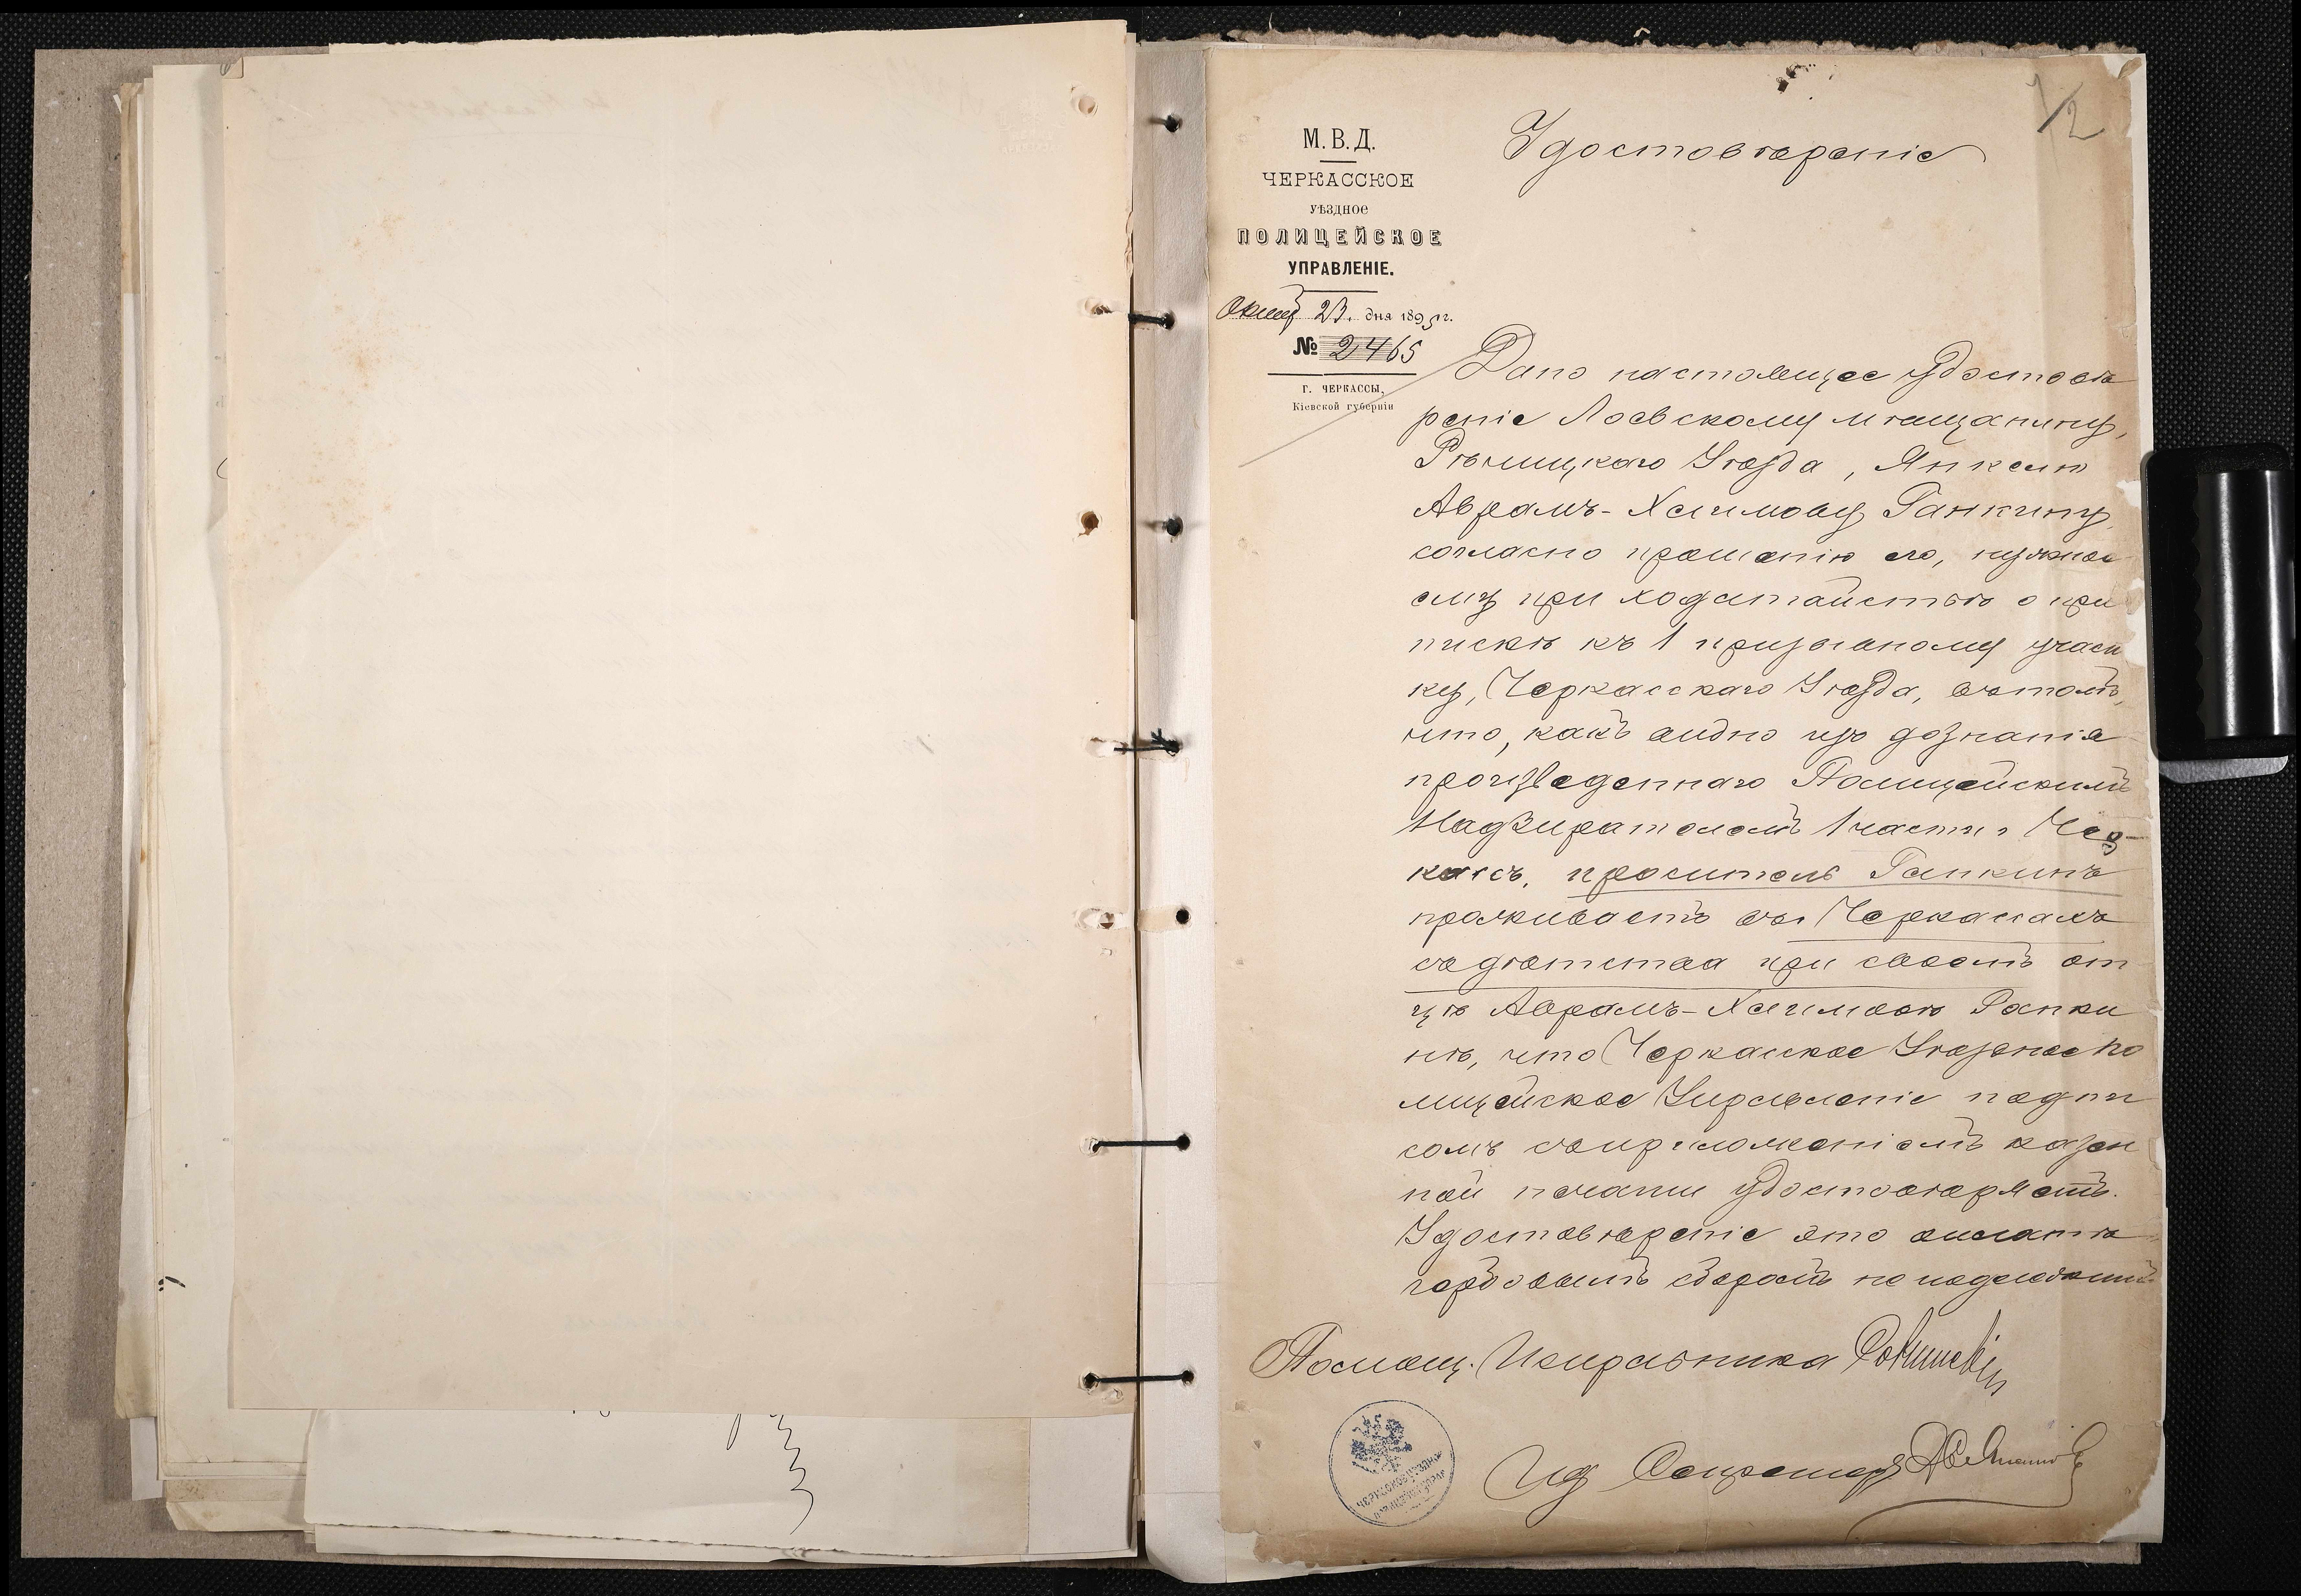 1/2
М. В. Д.
ЧЕРКАССКОЕ
УѢЗДНОЕ
ПОЛИЦЕЙСКОЕ
УПРАВЛЕНІЕ.
23. дня 1895 г.
№ 2465
г. ЧЕРКАССЫ,
Кіевской губерніи
Удостовѣреніе
Дано настоящее удостовѣ
реніе Лоевскому мѣщанину,
Рѣчицкаго Уѣзда, Янкелю
Аврамъ-Хаимову Ганкину
согласно прошенію его, нужное
ему при ходатайствѣ о при
пискѣ къ 1 призывному участ
ку, Черкасскаго Уѣзда, въ томъ,
что, какъ видно изъ дознанія
произведеннаго Полицейскимъ
Надзирателемъ 1 части г Чер-
кассъ, проситель Ганкинъ
проживаетъ въ г Черкассахъ
съ дѣтства при своемъ от
цѣ Аврамъ-Хаимовѣ Ганки
нѣ, что Черкасское Уѣздное По
лицейское Управленіе подпи
сомъ съ приложеніемъ казен
ной печати удостовѣряетъ.
Удостовѣреніе это оплатѣ
гербовымъ сборомъ не подлежитъ
Помощ. Исправника
Ид Секретаря
ЧЕРКАССКОЕ УѢЗДНОЕ